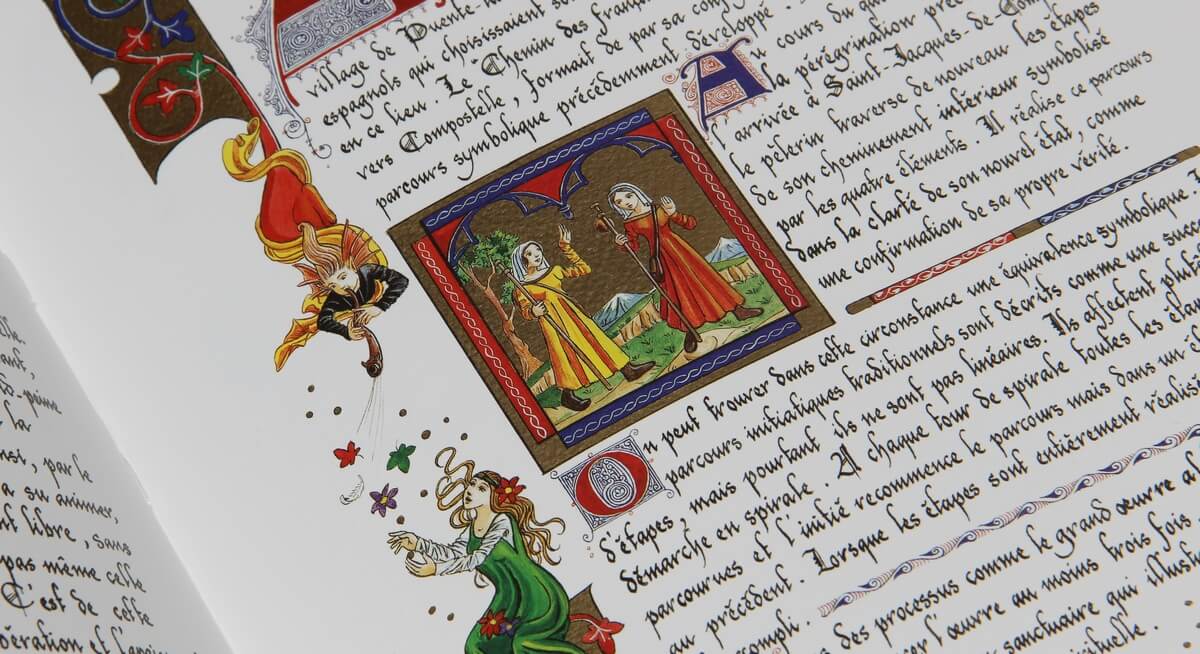 ville.
ant,
la
nsi, par le
a su animer,
nt libre, sans
pas même celle
C'est de cette
village de Puente-la
espagnols qui choisissaient
en ce lieu. Le "Chemin des français
vers Compostelle, formait de par sa
parcours symbolique précédemment développé.
Au cours du
la pérégrination
l'arrivée à Saint-Jacques-de-Comp
le pèlerin traverse de nouveau les étapes
de son cheminement intérieur symbolisé
par les quatre éléments. Il réalise ce parcours
dans la clarté de son nouvel état, comme
une confirmation de sa propre vérité.
On peut trouver dans cette circonstance une équivalence symbolique
parcours initiatiques traditionnels sont décrits comme une succe
d'étapes, mais pourtant ils ne sont pas linéaires. Ils affectent plutô
démarche en spirale. A chaque tour de spirale toutes les étap
parcourues et l'initié recommence le parcours mais dans un é
au précédent. Lorsque les étapes sont entièrement réalis
ompli.
des processus comme le grand œuvre al
er l'œuvre au moins trois fois
sanctuaire qui illust
rituelle.